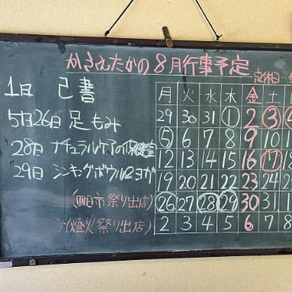 かさんたかの8月行事予定
定休日
1日 己書
5日26日 足もみ
28日 ナチュラルケアの保健室
29日 シンキングボウルとヨガ
(四日市祭り出店)
(燈火祭り出店)
月 火 水 木 金 土
29 30 31 1 2 3 4
5 6 7 8 9
12 13 14 15 16 17
19 20 21 22 23 24
26 27 28 29 30 31
2 3 4 5 6 7